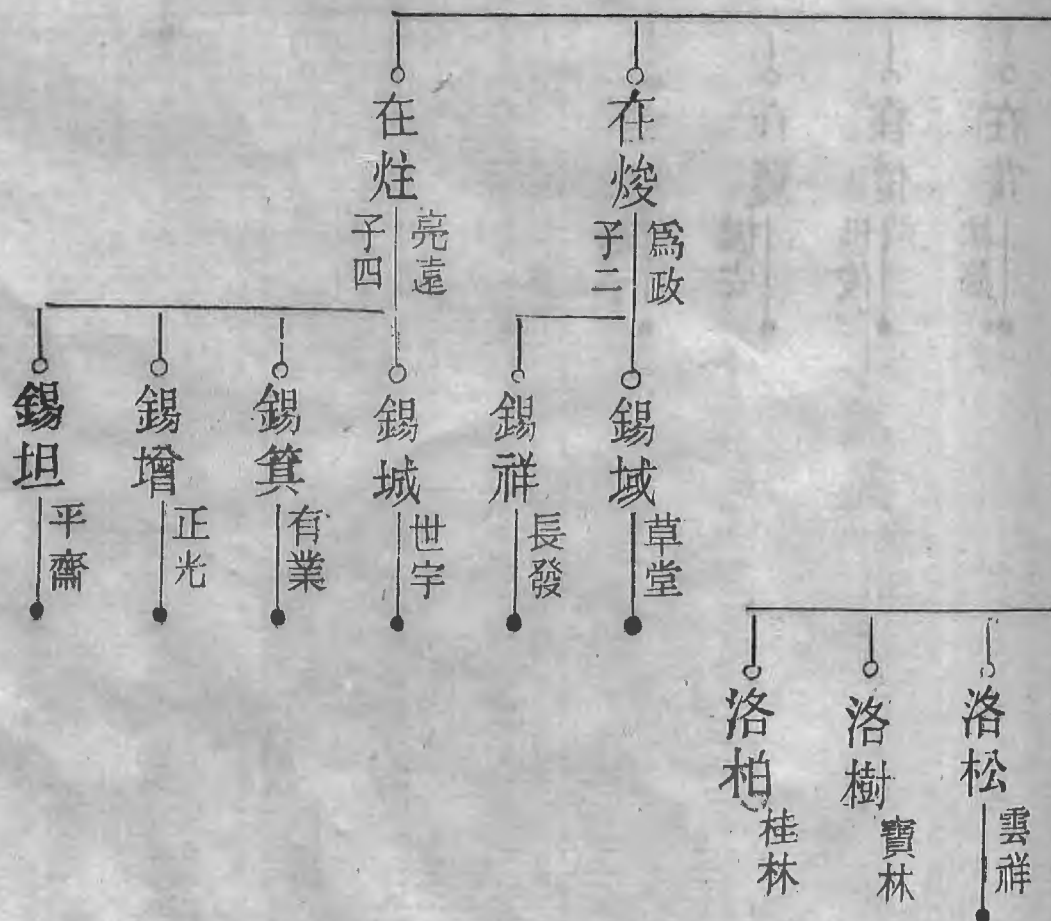 在焌
爲政
子二
在炷
亮遠
子四
錫域
草堂
錫祥
長發
錫城
世宇
錫箕
有業
錫增
正光
錫坦
平齋
洛松
雲祥
洛樹
寶林
洛柏
桂林